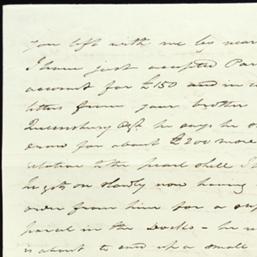 you left with me by
I have just accepted
account for £150 and
letter from your brother
Queensbury he says he
draw for about £200 more
relation to the pearl shell I
he gets on slowly now having
order from him for a
parcel in the Docks - he
is about to send up a small